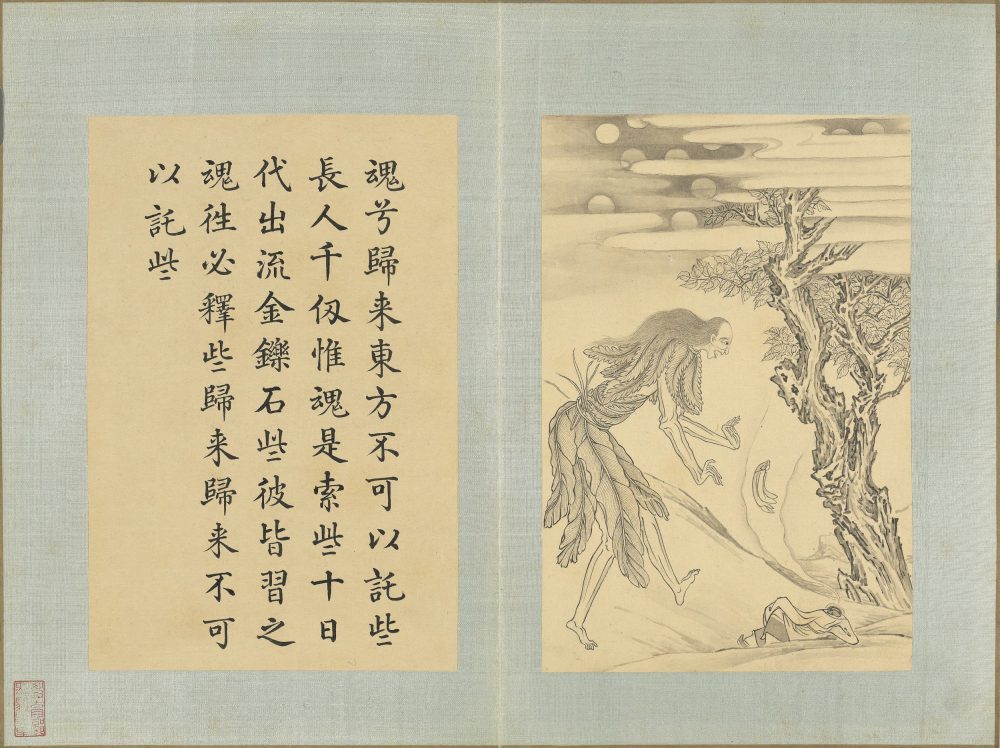 魂兮歸来東方不可以託些
長人千仭惟魂是索些十日
代出流金鑠石些彼皆習之
魂徃必釋些歸来歸来不可
以託些